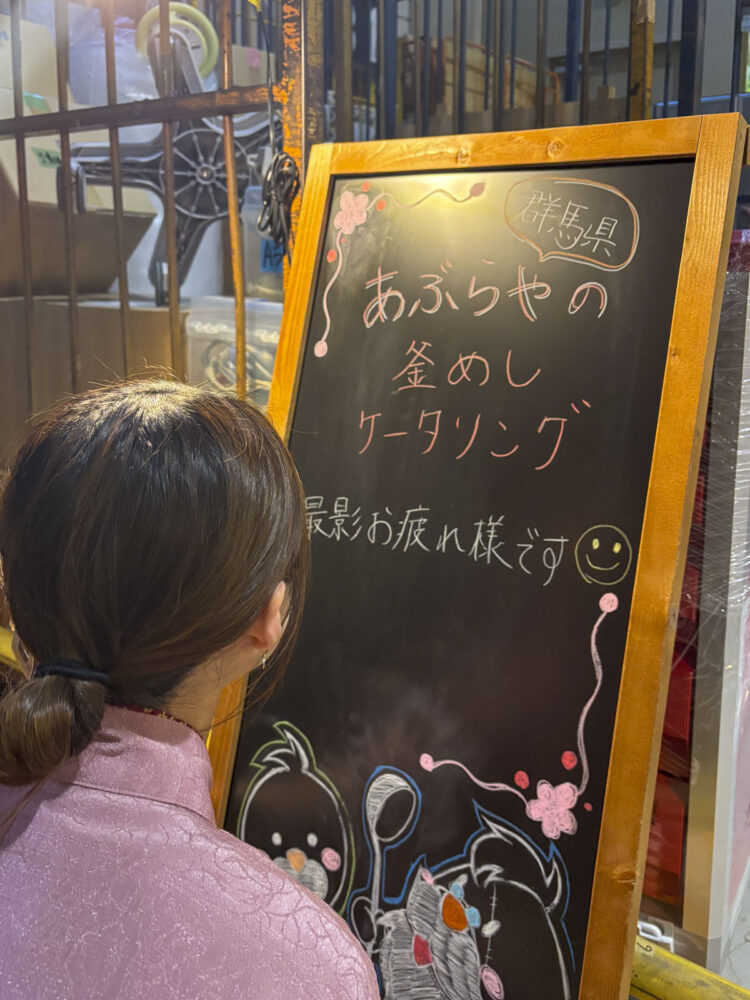 群馬県
あぶらやの
釜めし
ケータリング
撮影お疲れ様です